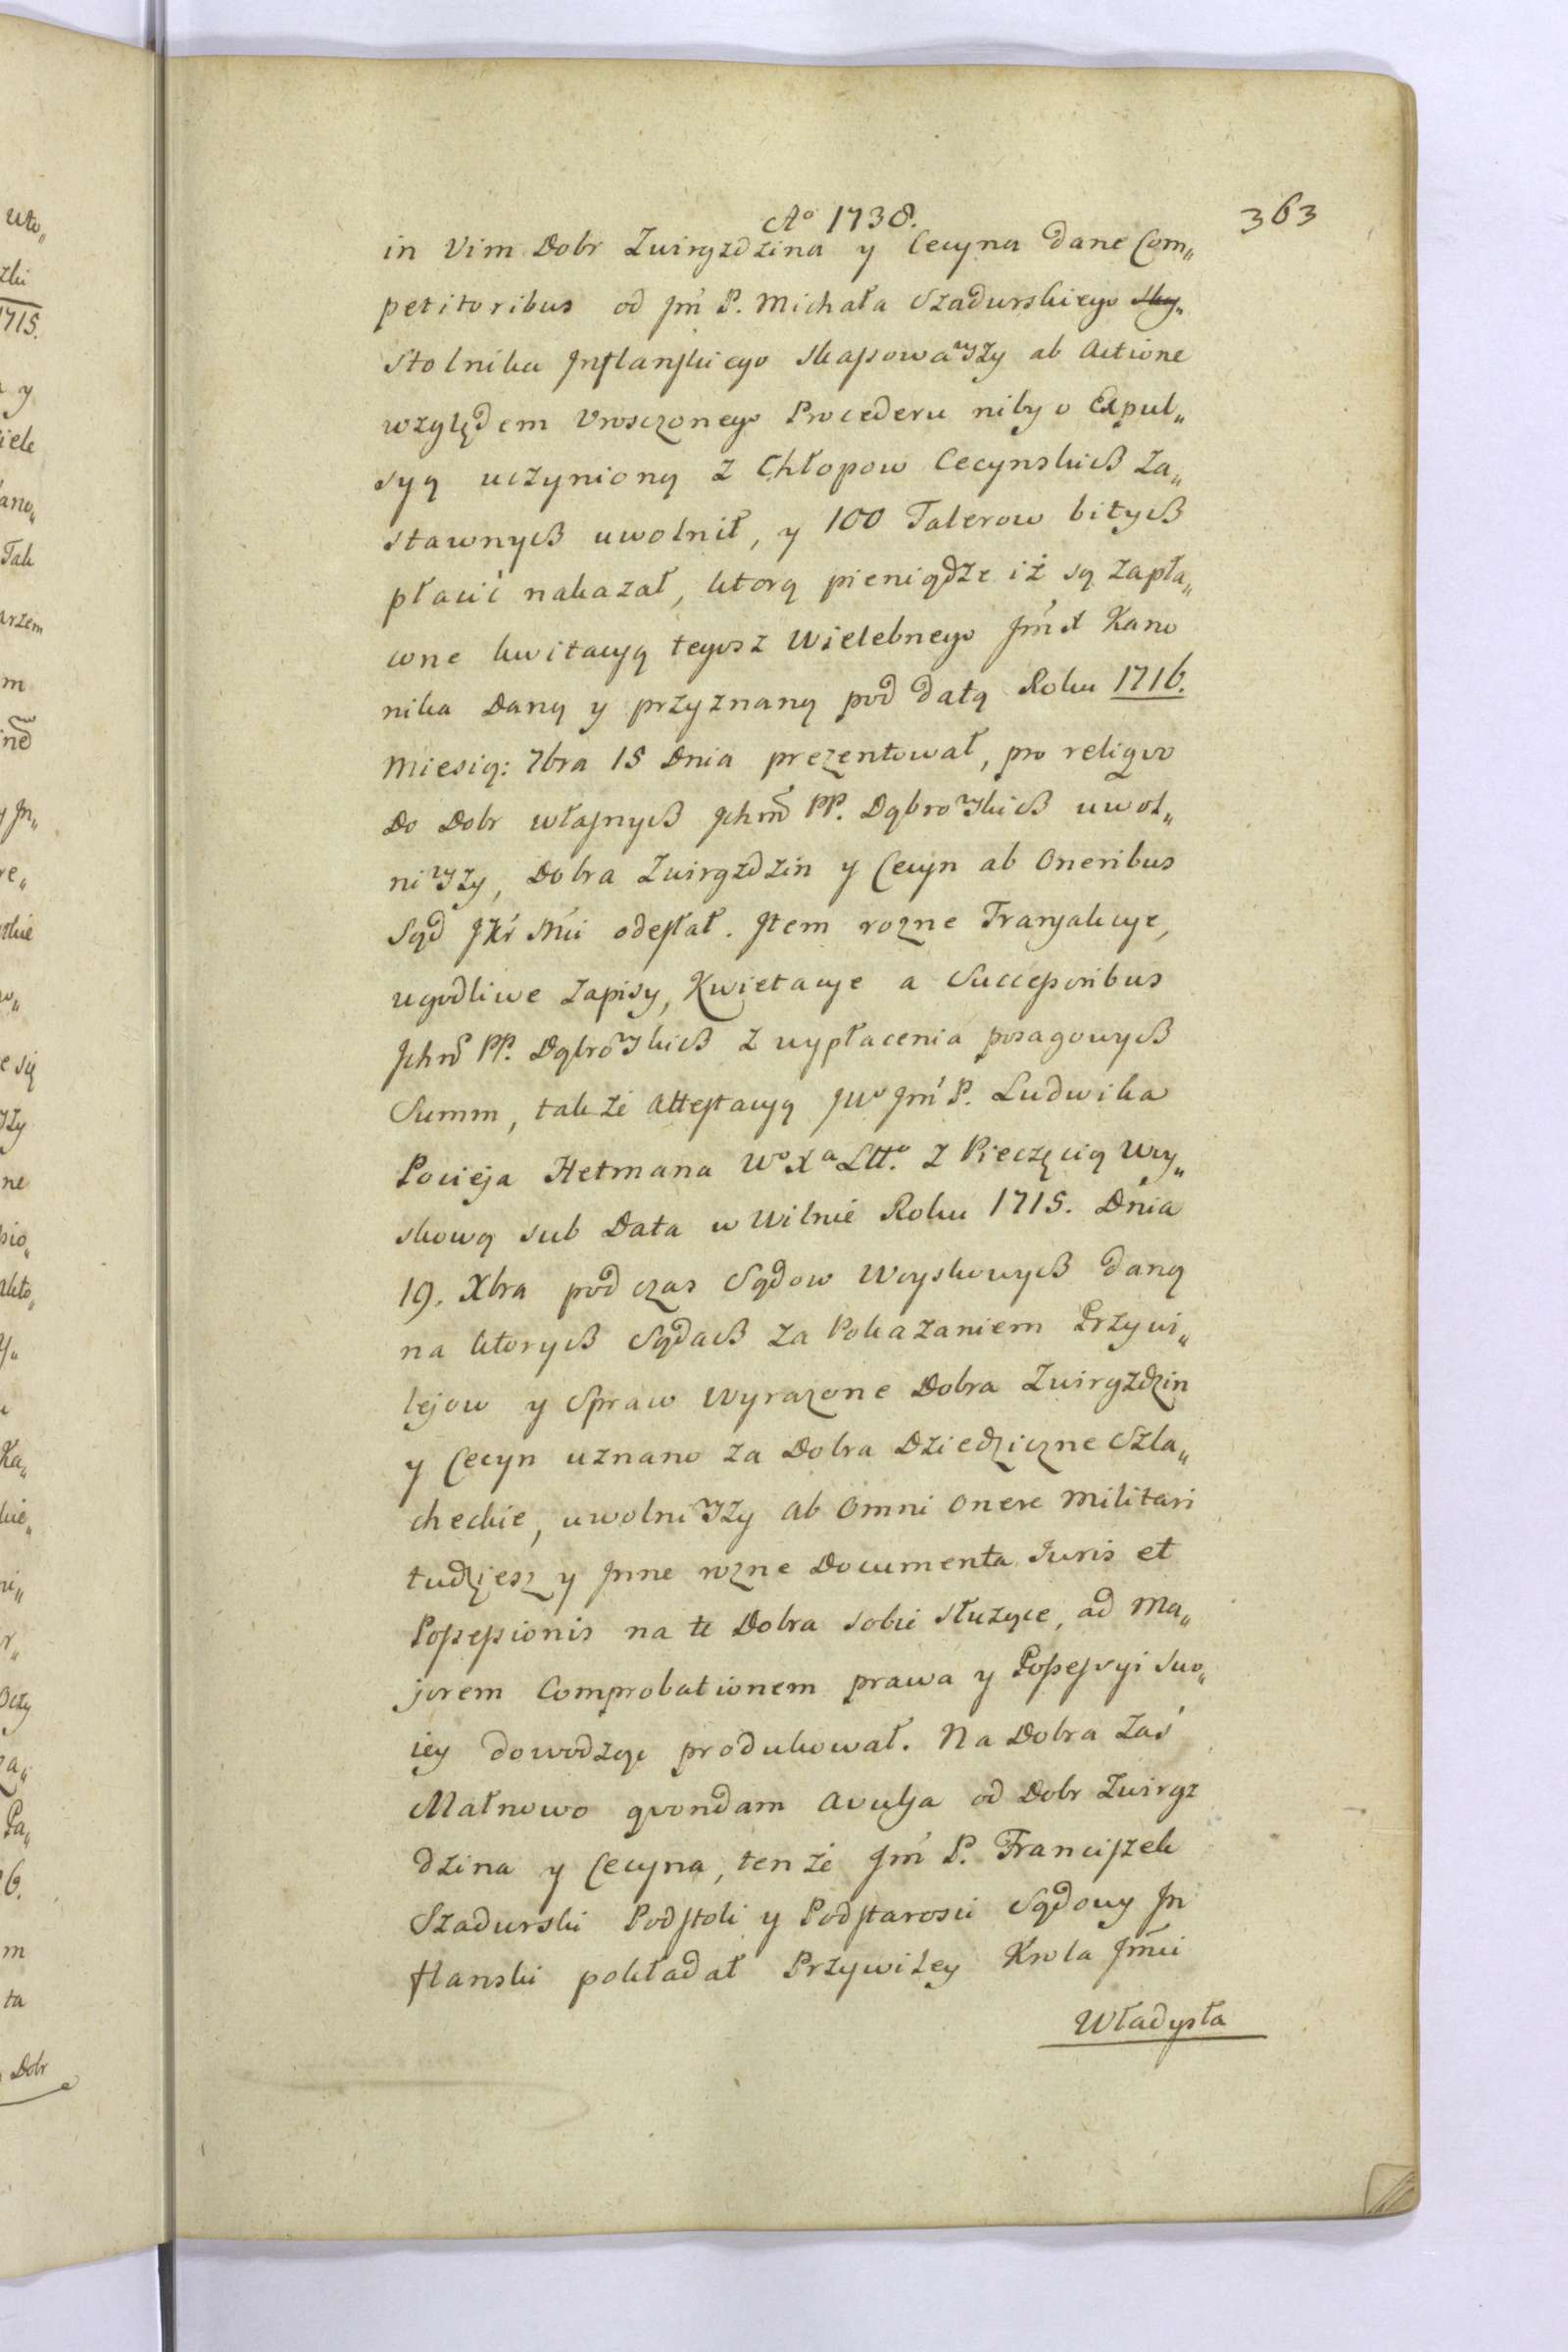 Aº 1738.
363
in Vim Dobr Zwirgzdzina y Cecyna dane Com„
petitoribus od Jm̃ P. Michała Szadurskiego
Stolnika Inflanskiego skassowawszy ab Actione
względem Vrosczonego Procederu niby o Expul„
syą uczynioną z Chłopow Cecynskich Za„
stawnych uwolnił, y 100 Talerow bitych
płacić nakazał, ktorą pieniądze iż są zapła„
cone kwitacyą tegosz Wielebnego Jm̃ X Kano
nika Daną y przyznaną pod datą Roku 1716.
Miesią: 7bra 15 Dnia prezentował, pro reliquo
Do Dobr własnych Ichm̃ PP. Dąbrowskich uwol„
niwszy, Dobra Zwirgzdzin y Cecyn ab Oneribus
Sąd JKr Mći odesłał. Item rozne Transakcye,
ugodliwe zapisy, Kwietacye a Successoribus
Ichm̃ PP. Dąbrowskich z wypłacenia posagowych
Summ, takze Attestacyą JWº Jm̃ P. Ludwika
Pocieja Hetmana Wº Xª Littº z Pieczęcią Woy„
skową sub Data w Wilnie Roku 1715. Dnia
19. Xbra pod czas Sądow Woyskowych daną
na ktorych Sądach za Pokazaniem Przywi„
lejow y Spraw Wyrazone Dobra Zwirgzdzin
y Cecyn uznano za Dobra Dziedziczne Szla„
checkie, uwolniwszy ab Omni Onere Militari
tudziesz y Inne rozne Documenta Iuris et
Possessionis na te Dobra sobie służące, ad Ma„
jorem Comprobationem prawa y Possessyi swo„
iey dowodząc produkował. Na Dobra zaś
Małnowo qvondam Avulsa od Dobr Zwirgz
dzina y Cecyna, tenże Jm̃ P. Franciszek
Szadurski Podstoli y Podstarosci Sądowy In
flanski pokładał Przywiley Krola Jm̃ci
Władysła